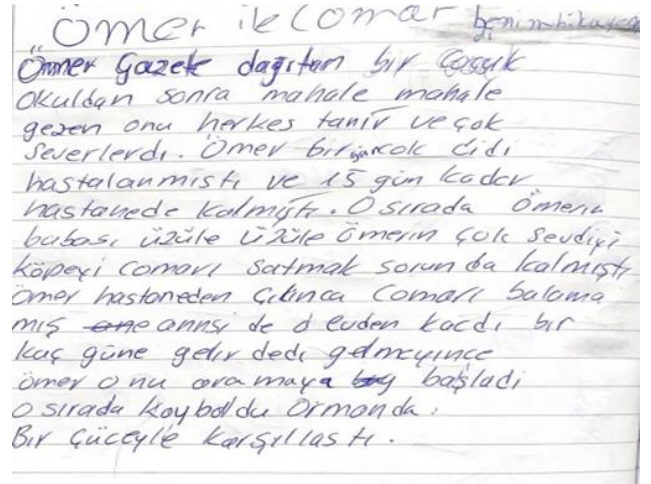 Ömer ile Comar benim hikayem
Ömer Gazete dağıtan bir Çoçuk
Okuldan sonra mahale mahale
gezen onu herkes tanır ve çok
severlerdi. Ömer bir gün cok cidi
hastalanmıstı ve 15 gün kadar
hastanede kalmıştı. O sırada ömerin
babası üzüle üzüle ömerin çok sevdiyi
köpeyi comarı satmak sorunda kalmıştı
ömer hastaneden çıkınca comarı balama
mış annsi de d evden kacdı bir
kaç güne gelir dedi gelmeyince
ömer onu aramaya başladi
O sırada kayboldu Ormanda.
Bir Cüceyle karşıllastı.